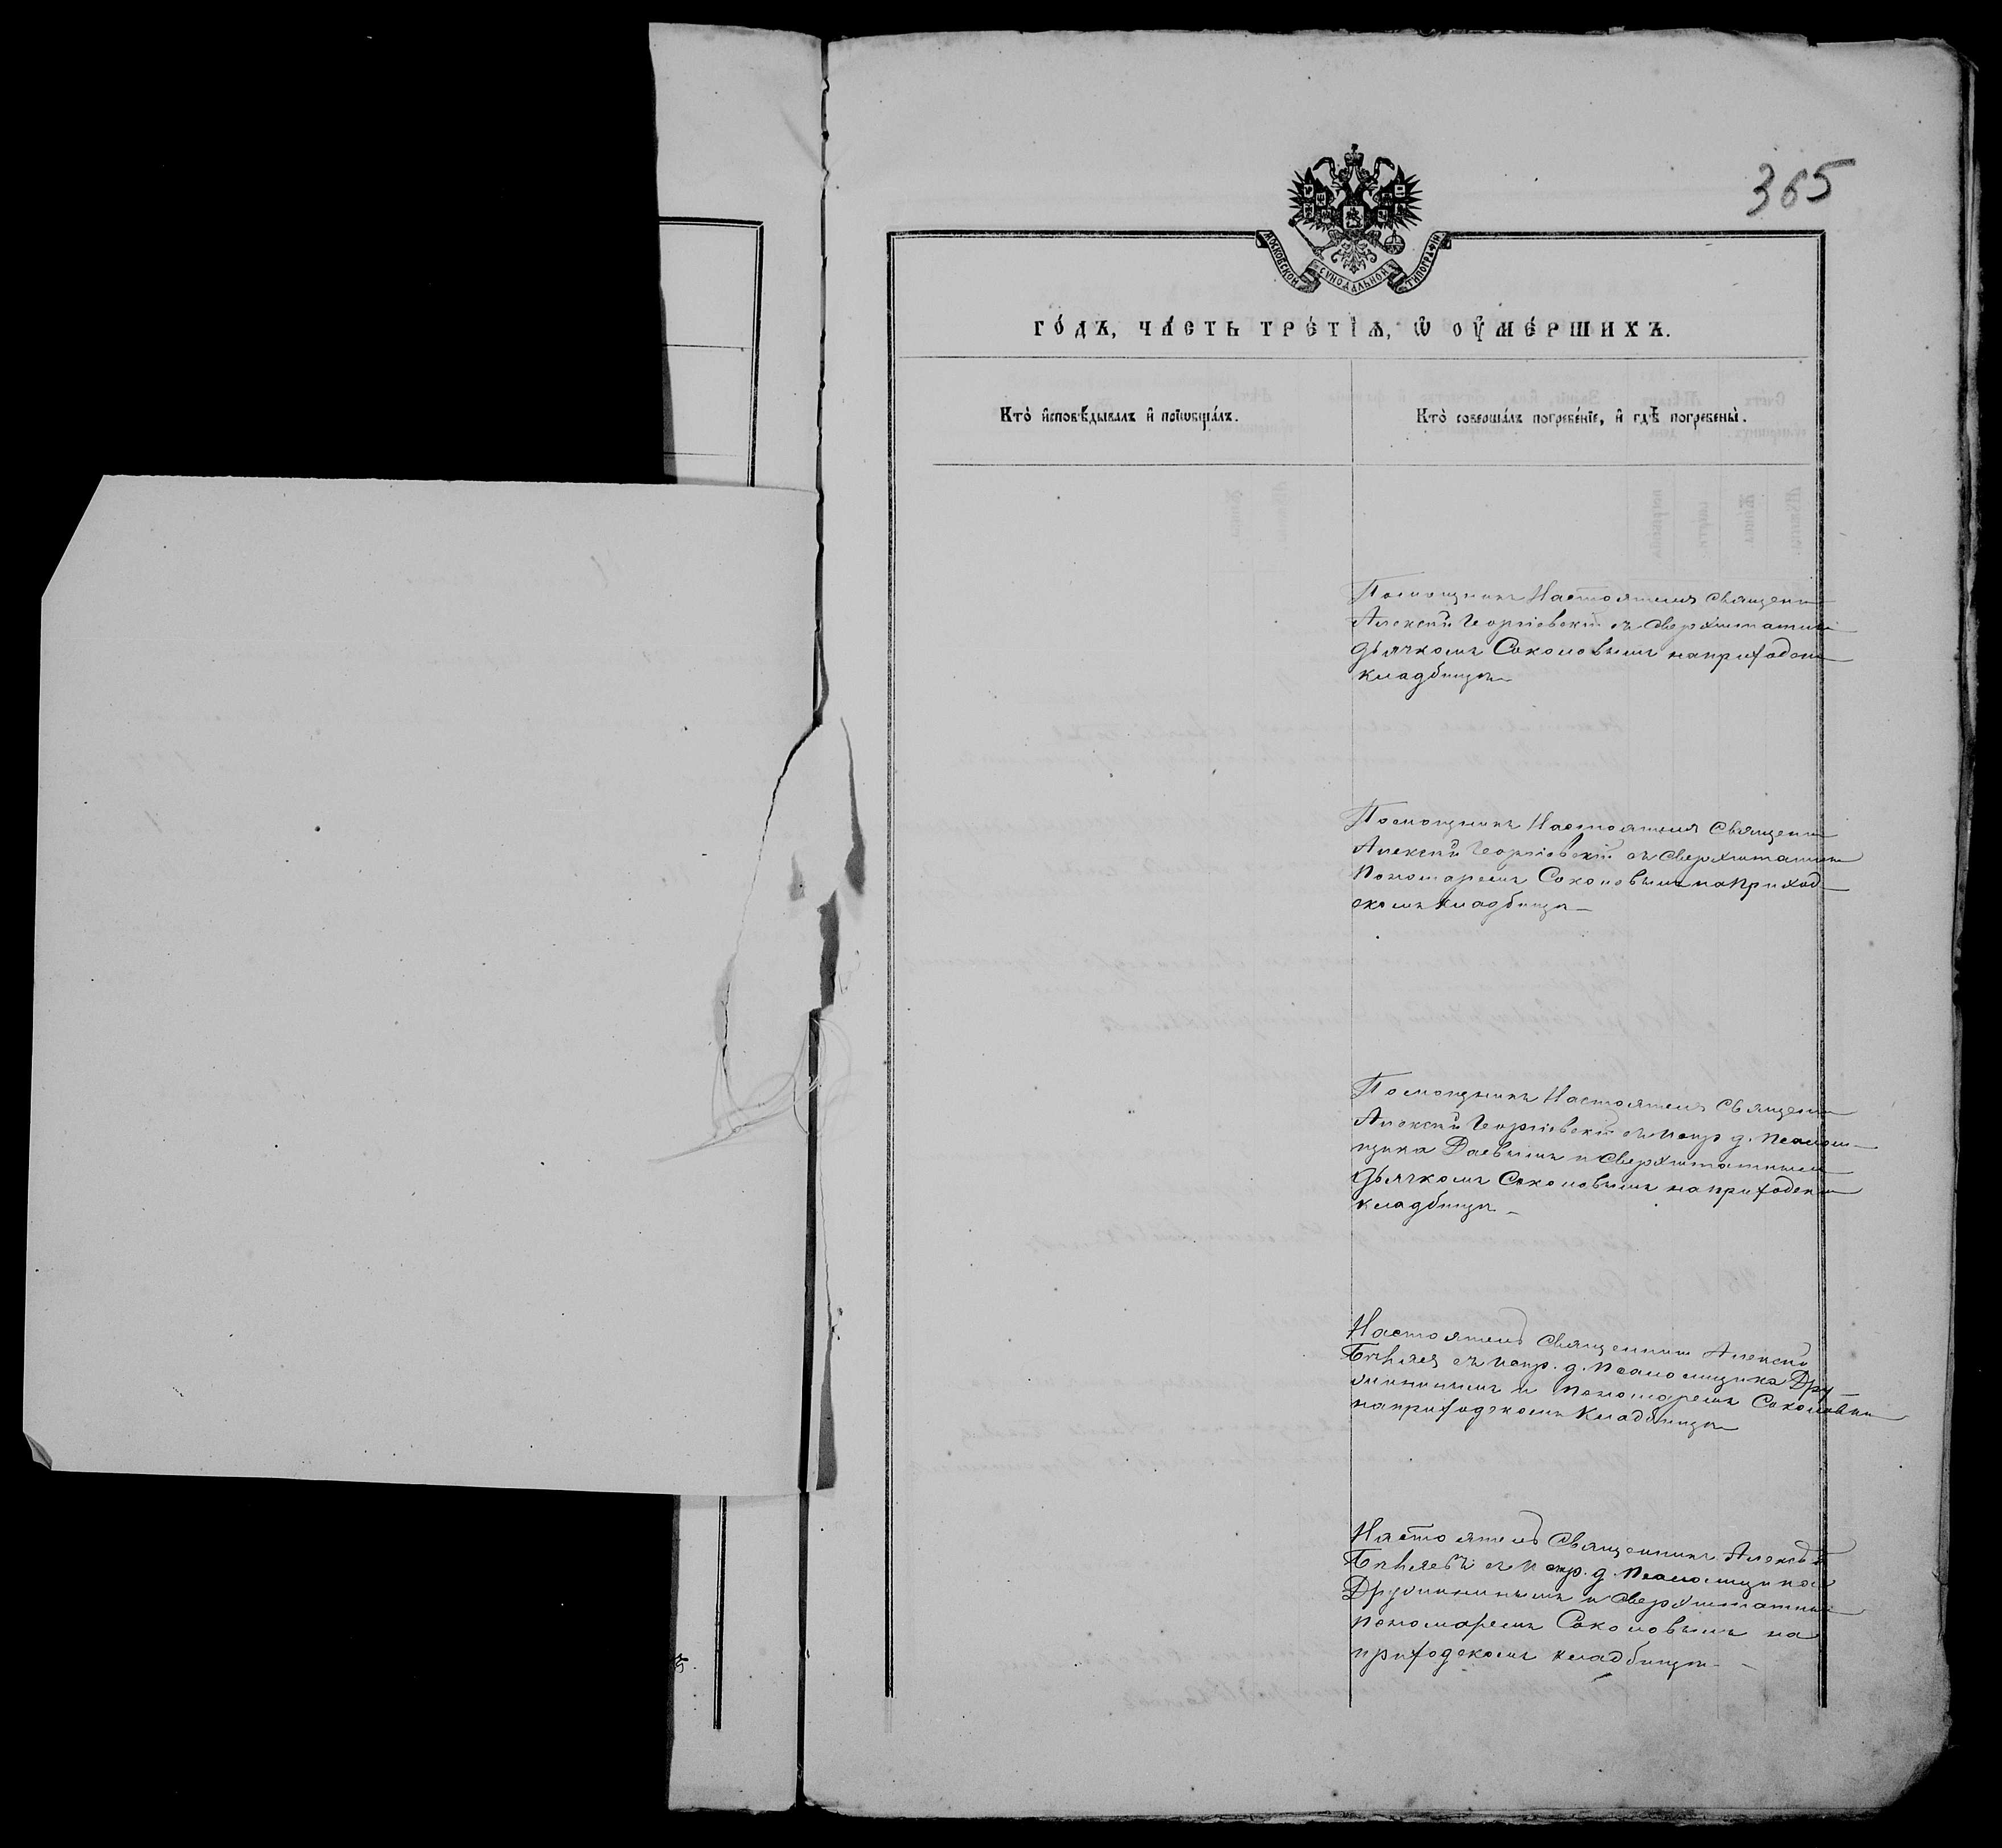 365
МОСКОВСКОЙ СѴНОДАЛЬНОЙ ТИПОГРАФІИ
ГО́ДЪ, ЧА́СТЬ ТРЕ́ТІѦ, Ѡ҆ ОУ҆МЕ́РШИХЪ.
Кто̀ и҆сповѣ́дывалъ и҆ пріѡбща́лъ.
Кто̀ соверша́лъ погребе́нїе, и҆ гдѣ̀ погребены̀.
Помощникъ Настоятеля Священ
Алексѣй Георгіевскій съ сверхштатн
дьячкомъ Соколовымъ на приходск
кладбищѣ
Помощникъ Настоятеля Священ
Алексѣй Георгіевскій съ сверхштатн
Пономаремъ Соколовымъ на приход
скомъ кладбищѣ
Помощникъ Настоятеля Священ
Алексѣй Георгіевскій съ испр д. псалом
щика Даевымъ и сверхштатным
дьячкомъ Соколовымъ на приходском
кладбищѣ
Настоятель Священник Алексѣй
Бѣляев съ испр. д. Псаломщика Дру
жининымъ и Пономаремъ Соколовым
на приходскомъ Кладбищѣ
Настоятель Священникъ Алексѣй
Бѣляевъ съ испр. д. Псаломщика
Дружининымъ и сверхштатным
пономаремъ Соколовымъ на
приходскомъ кладбищѣ